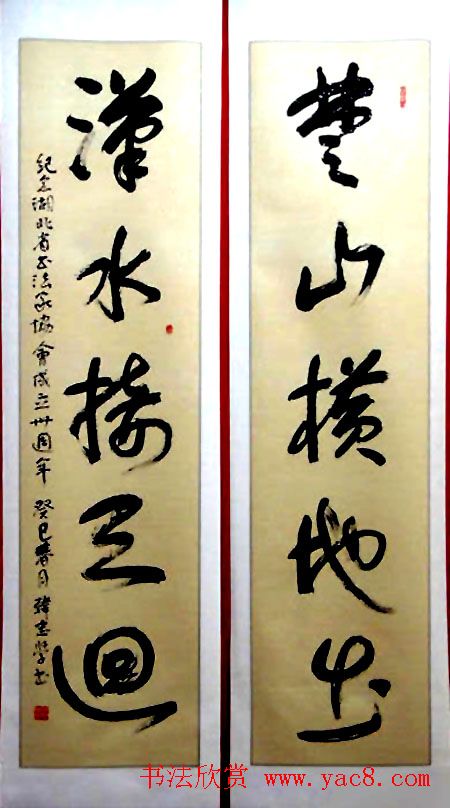 楚山横地出
漢水接天迴
紀念湖北省书法家協會成立卅周年 癸巳春月
书法欣赏 www.yac8.com